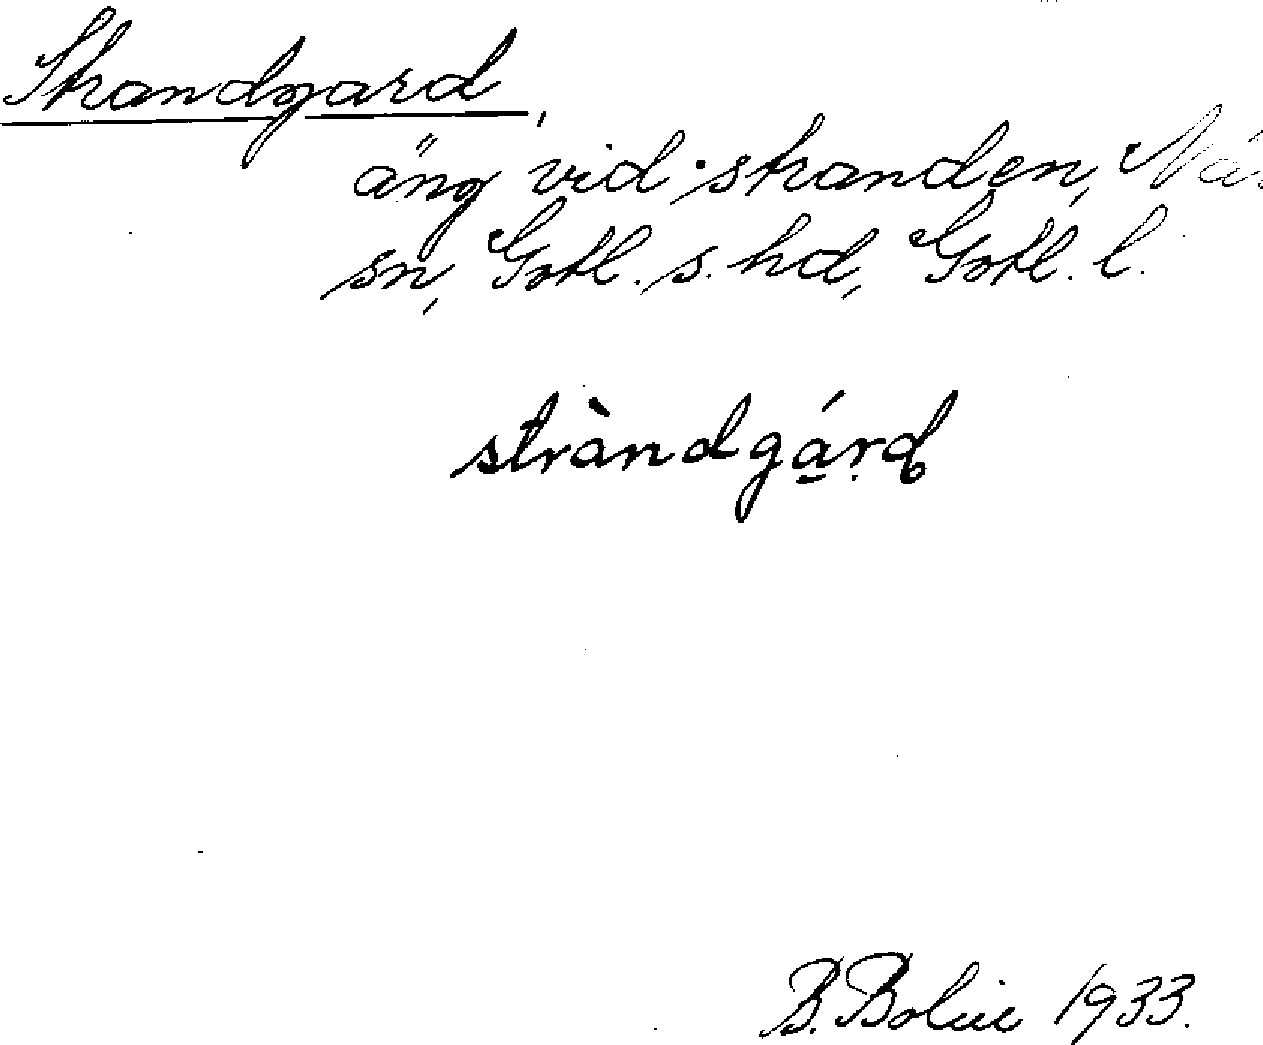 Strandgard,
äng vid stranden,
sn, Gotl. s. hd, Gotl. l.
stràndgárd
B. Bolin 1933.